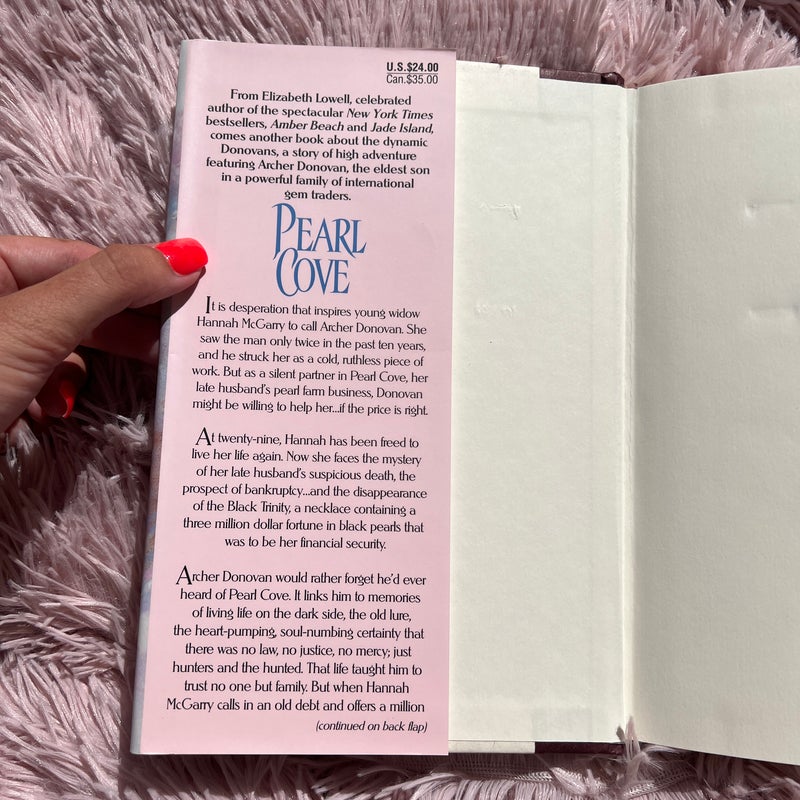 U.S.$24.00
Can.$35.00
From Elizabeth Lowell, celebrated
author of the spectacular New York Times
bestsellers, Amber Beach and Jade Island,
comes another book about the dynamic
Donovans, a story of high adventure
featuring Archer Donovan, the eldest son
in a powerful family of international
gem traders.
PEARL
COVE
It is desperation that inspires young widow
Hannah McGarry to call Archer Donovan. She
saw the man only twice in the past ten years,
and he struck her as a cold, ruthless piece of
work. But as a silent partner in Pearl Cove, her
late husband's pearl farm business, Donovan
might be willing to help her...if the price is right.
At twenty-nine, Hannah has been freed to
live her life again. Now she faces the mystery
of her late husband's suspicious death, the
prospect of bankruptcy...and the disappearance
of the Black Trinity, a necklace containing a
three million dollar fortune in black pearls that
was to be her financial security.
Archer Donovan would rather forget he'd ever
heard of Pearl Cove. It links him to memories
of living life on the dark side, the old lure,
the heart-pumping, soul-numbing certainty that
there was no law, no justice, no mercy; just
hunters and the hunted. That life taught him to
trust no one but family. But when Hannah
McGarry calls in an old debt and offers a million
(continued on back flap)